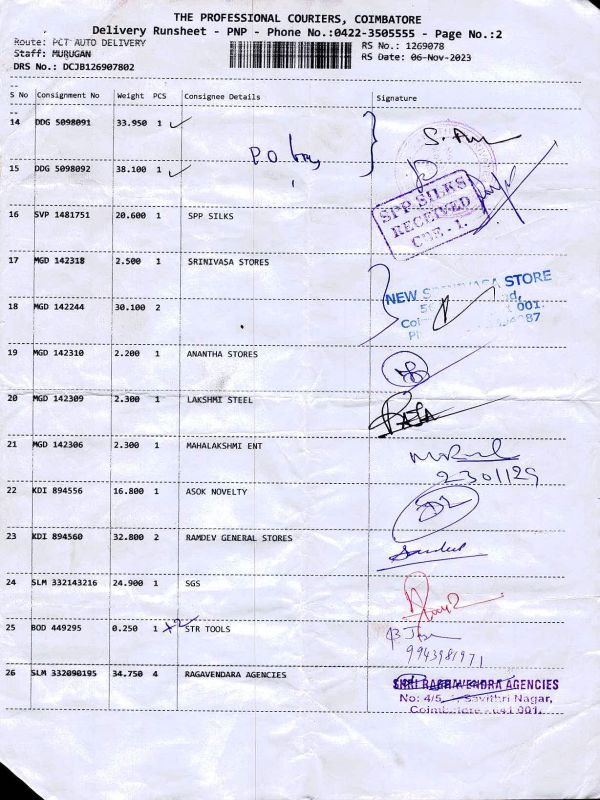 THE PROFESSIONAL COURIERS, COIMBATORE
Delivery Runsheet - PNP - Phone No.:0422-3505555 - Page No.:2
Route: PCT AUTO DELIVERY
RS No.: 1269078
Staff: MURUGAN
RS Date: 06-Nov-2023
DRS No.: DCJB126907802
S No Consignment No Weight PCS Consignee Details Signature
14 DDG 5098091 33.950 1
P.O
S.
15 DDG 5098092 38.100 1
SPP SILKS
RECEIVED
CBE - 1.
16 SVP 1481751 20.600 1 SPP SILKS
17 MGD 142318 2.500 1 SRINIVASA STORES
NEW STORE
001.
18 MGD 142244 30.100 2
19 MGD 142310 2.200 1 ANANTHA STORES
20 MGD 142309 2.300 1 LAKSHMI STEEL
RAJA
21 MGD 142306 2.300 1 MAHALAKSHMI ENT
2301129
22 KDI 894556 16.800 1 ASOK NOVELTY
23 KDI 894560 32.800 2 RAMDEV GENERAL STORES
24 SLM 332143216 24.900 1 SGS
25 BOD 449295 0.250 1 +2 STR TOOLS
9943981971
26 SLM 332090195 34.750 4 RAGAVENDARA AGENCIES
SHRI RAGHAVENDRA AGENCIES
No: 4/5, Savithri Nagar,
Coimbatore - 641 001.